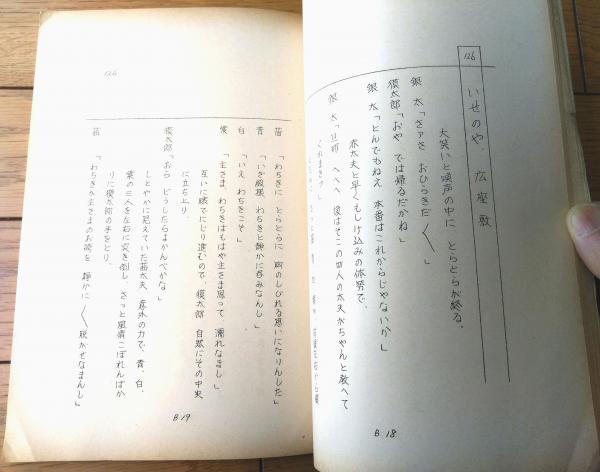 126
いせのや、広座敷
大笑いと嘆声の中に とらとらが終る。
銀太「さァさ おひらきだ〱」
獏太郎「おや では帰るだかね」
銀太「とんでもねえ 本番はこれからじゃないか」
赤太夫と早くもしけ込みの体勢で、
銀太「旦那 へへへ 後はそこの四人の太夫がちゃんと教へて
くれまさァ」
B 18
126
茜「わちきに とらとらに 胸のしびれる思いになりんした」
青「いざ殿様、わちきと静かに呑みなんし」
白「いえ わちきこそ」
紫「主さま、わちきはもはや主さま思って 濡れなまし」
互いに感でにじり進むので、獏太郎 自然にその中央
に立ち上り、
獏太郎「おら どうしたらよかんべかな」
しとやかに見えていた茜太夫 意外の力で、青、白、
紫の三人を左右に突き倒し、さっと風情こぼれんばか
りに獏太郎の手をとり、
茜「わちきが主さまのお荷を 静かに〱脱がせなまんし」
B 19